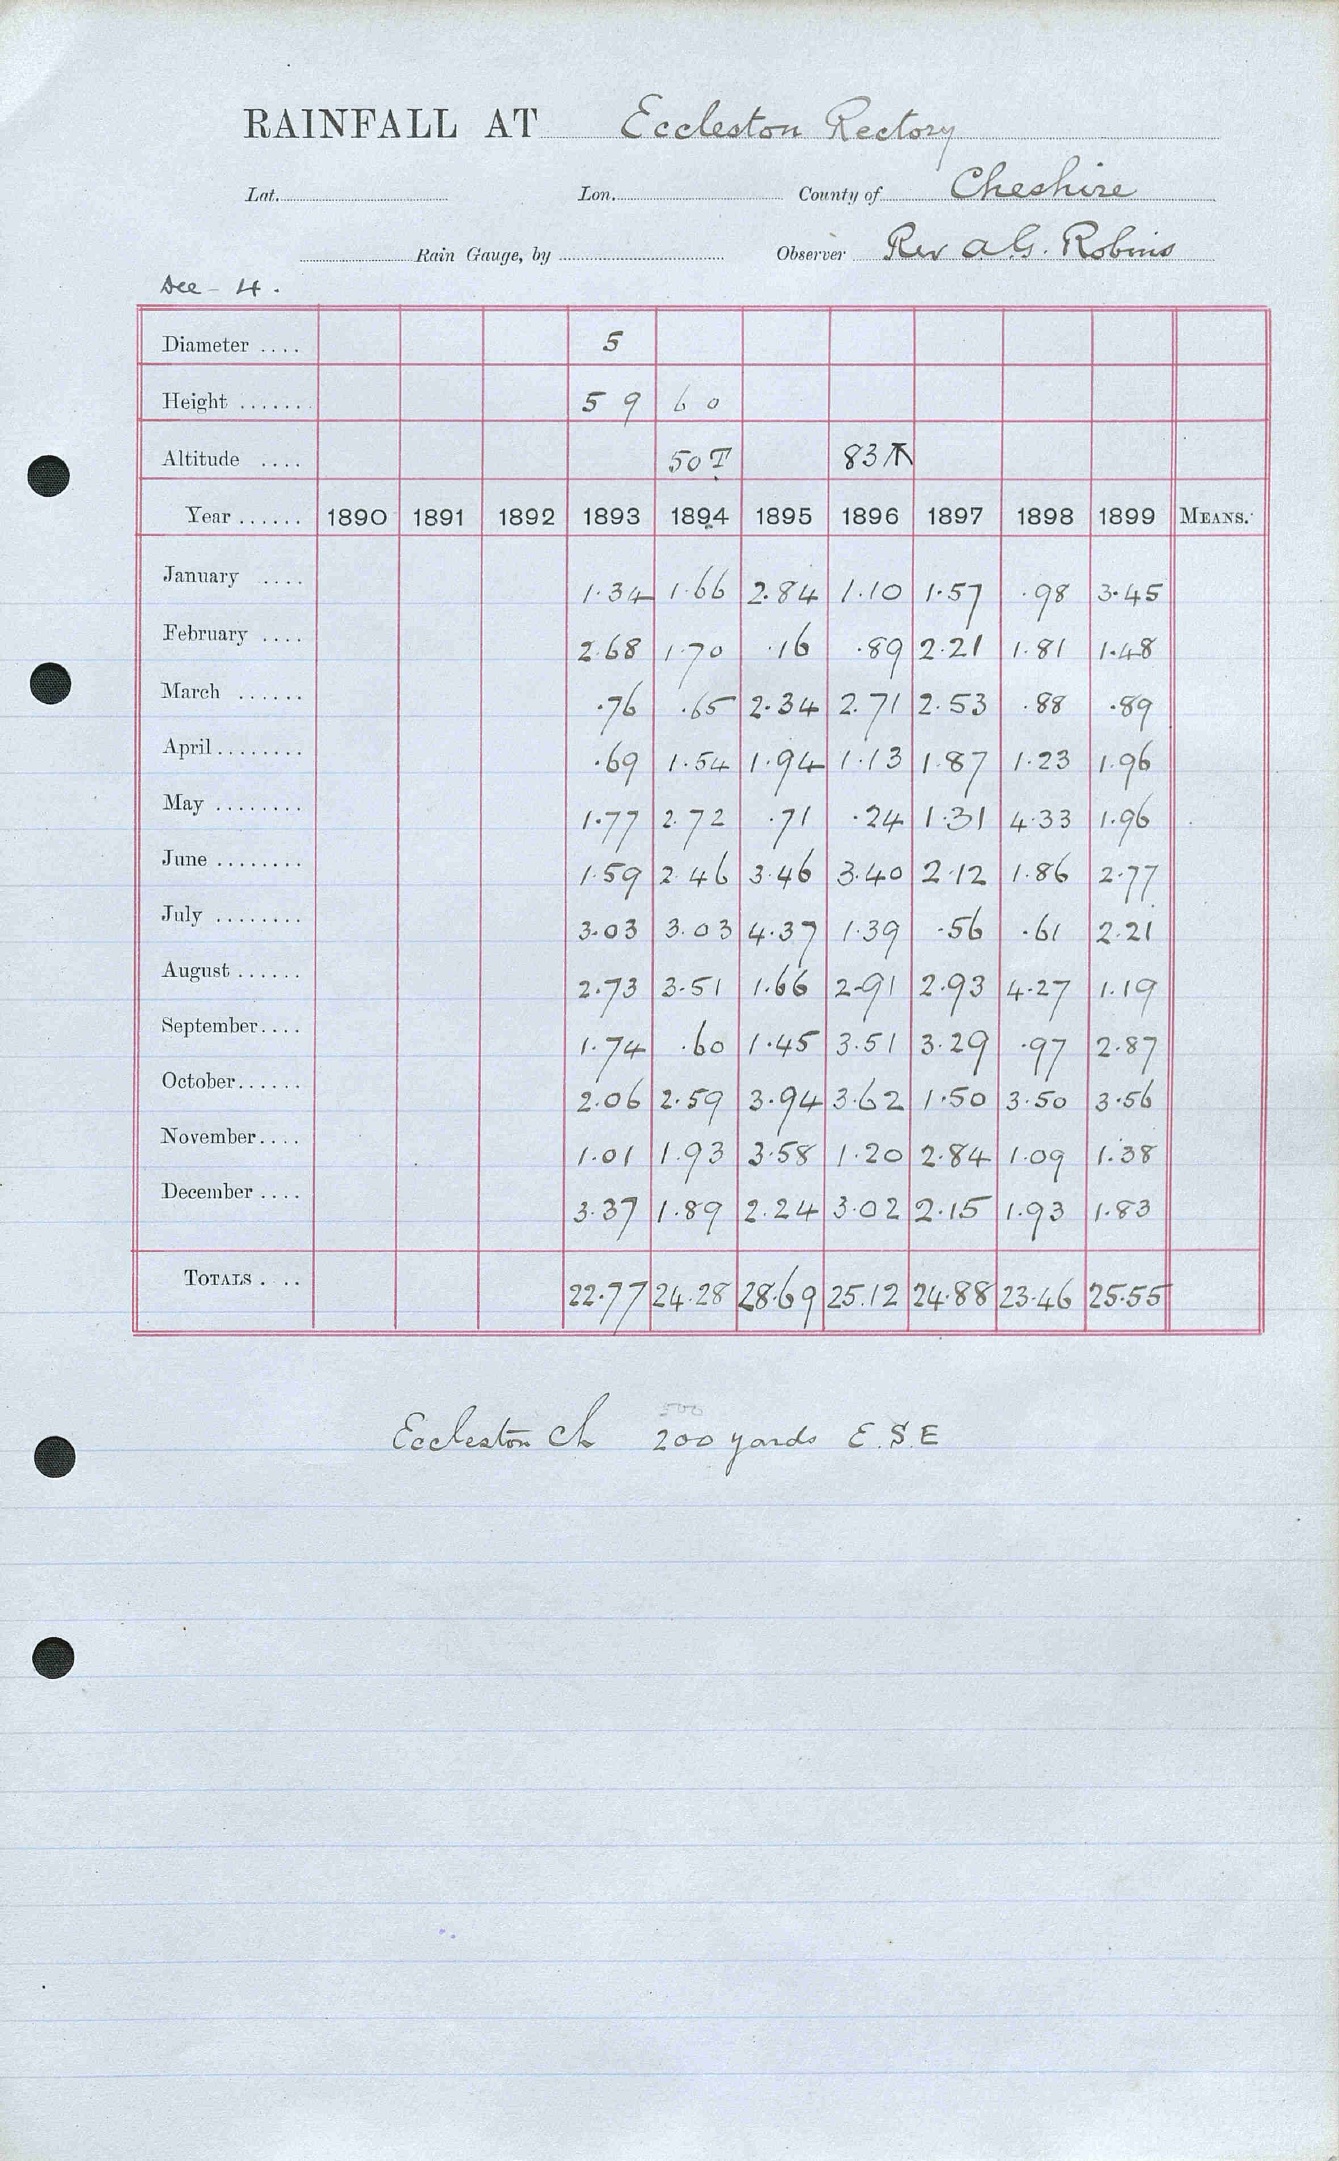 RAINFALL AT Eccleston Rectory
Lat. Lon. County of Cheshire
Rain Gauge, by Observer Rev A G. Robins
Dec - 4.
Diameter .... 5
Height ....... 5 9 6 0
Altitude .... 50 T 83
Year ...... 1890 1891 1892 1893 1894 1895 1896 1897 1898 1899 MEANS.
January .... 1.34 1.66 2.84 1.10 1.57 .98 3.45
February .... 2.68 1.70 .16 .89 2.21 1.81 1.48
March ...... .76 .65 2.34 2.71 2.53 .88 .89
April ........ .69 1.54 1.94 1.13 1.87 1.23 1.96
May ........ 1.77 2.72 .71 .24 1.31 4.33 1.96
June ........ 1.59 2.46 3.46 3.40 2.12 1.86 2.77
July ........ 3.03 3.03 4.37 1.39 .56 .61 2.21
August ...... 2.73 3.51 1.66 2.91 2.93 4.27 1.19
September.... 1.74 .60 1.45 3.51 3.29 .97 2.87
October...... 2.06 2.59 3.94 3.62 1.50 3.50 3.56
November.... 1.01 1.93 3.58 1.20 2.84 1.09 1.38
December .... 3.37 1.89 2.24 3.02 2.15 1.93 1.83
TOTALS .... 22.77 24.28 28.69 25.12 24.88 23.46 25.55
500
Eccleston Ch 200 yards E.S.E